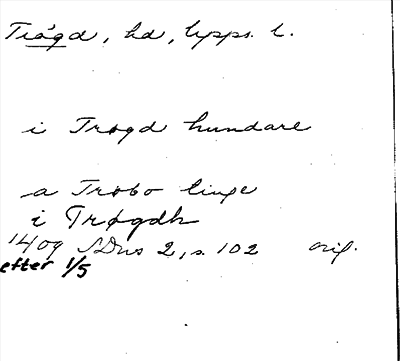 Trögd, hd, Upps. l.
i Trøgd hundare
a Trøbo linge
i Trøgdh
1409 SDns 2, s. 102 orig.
efter 1/5